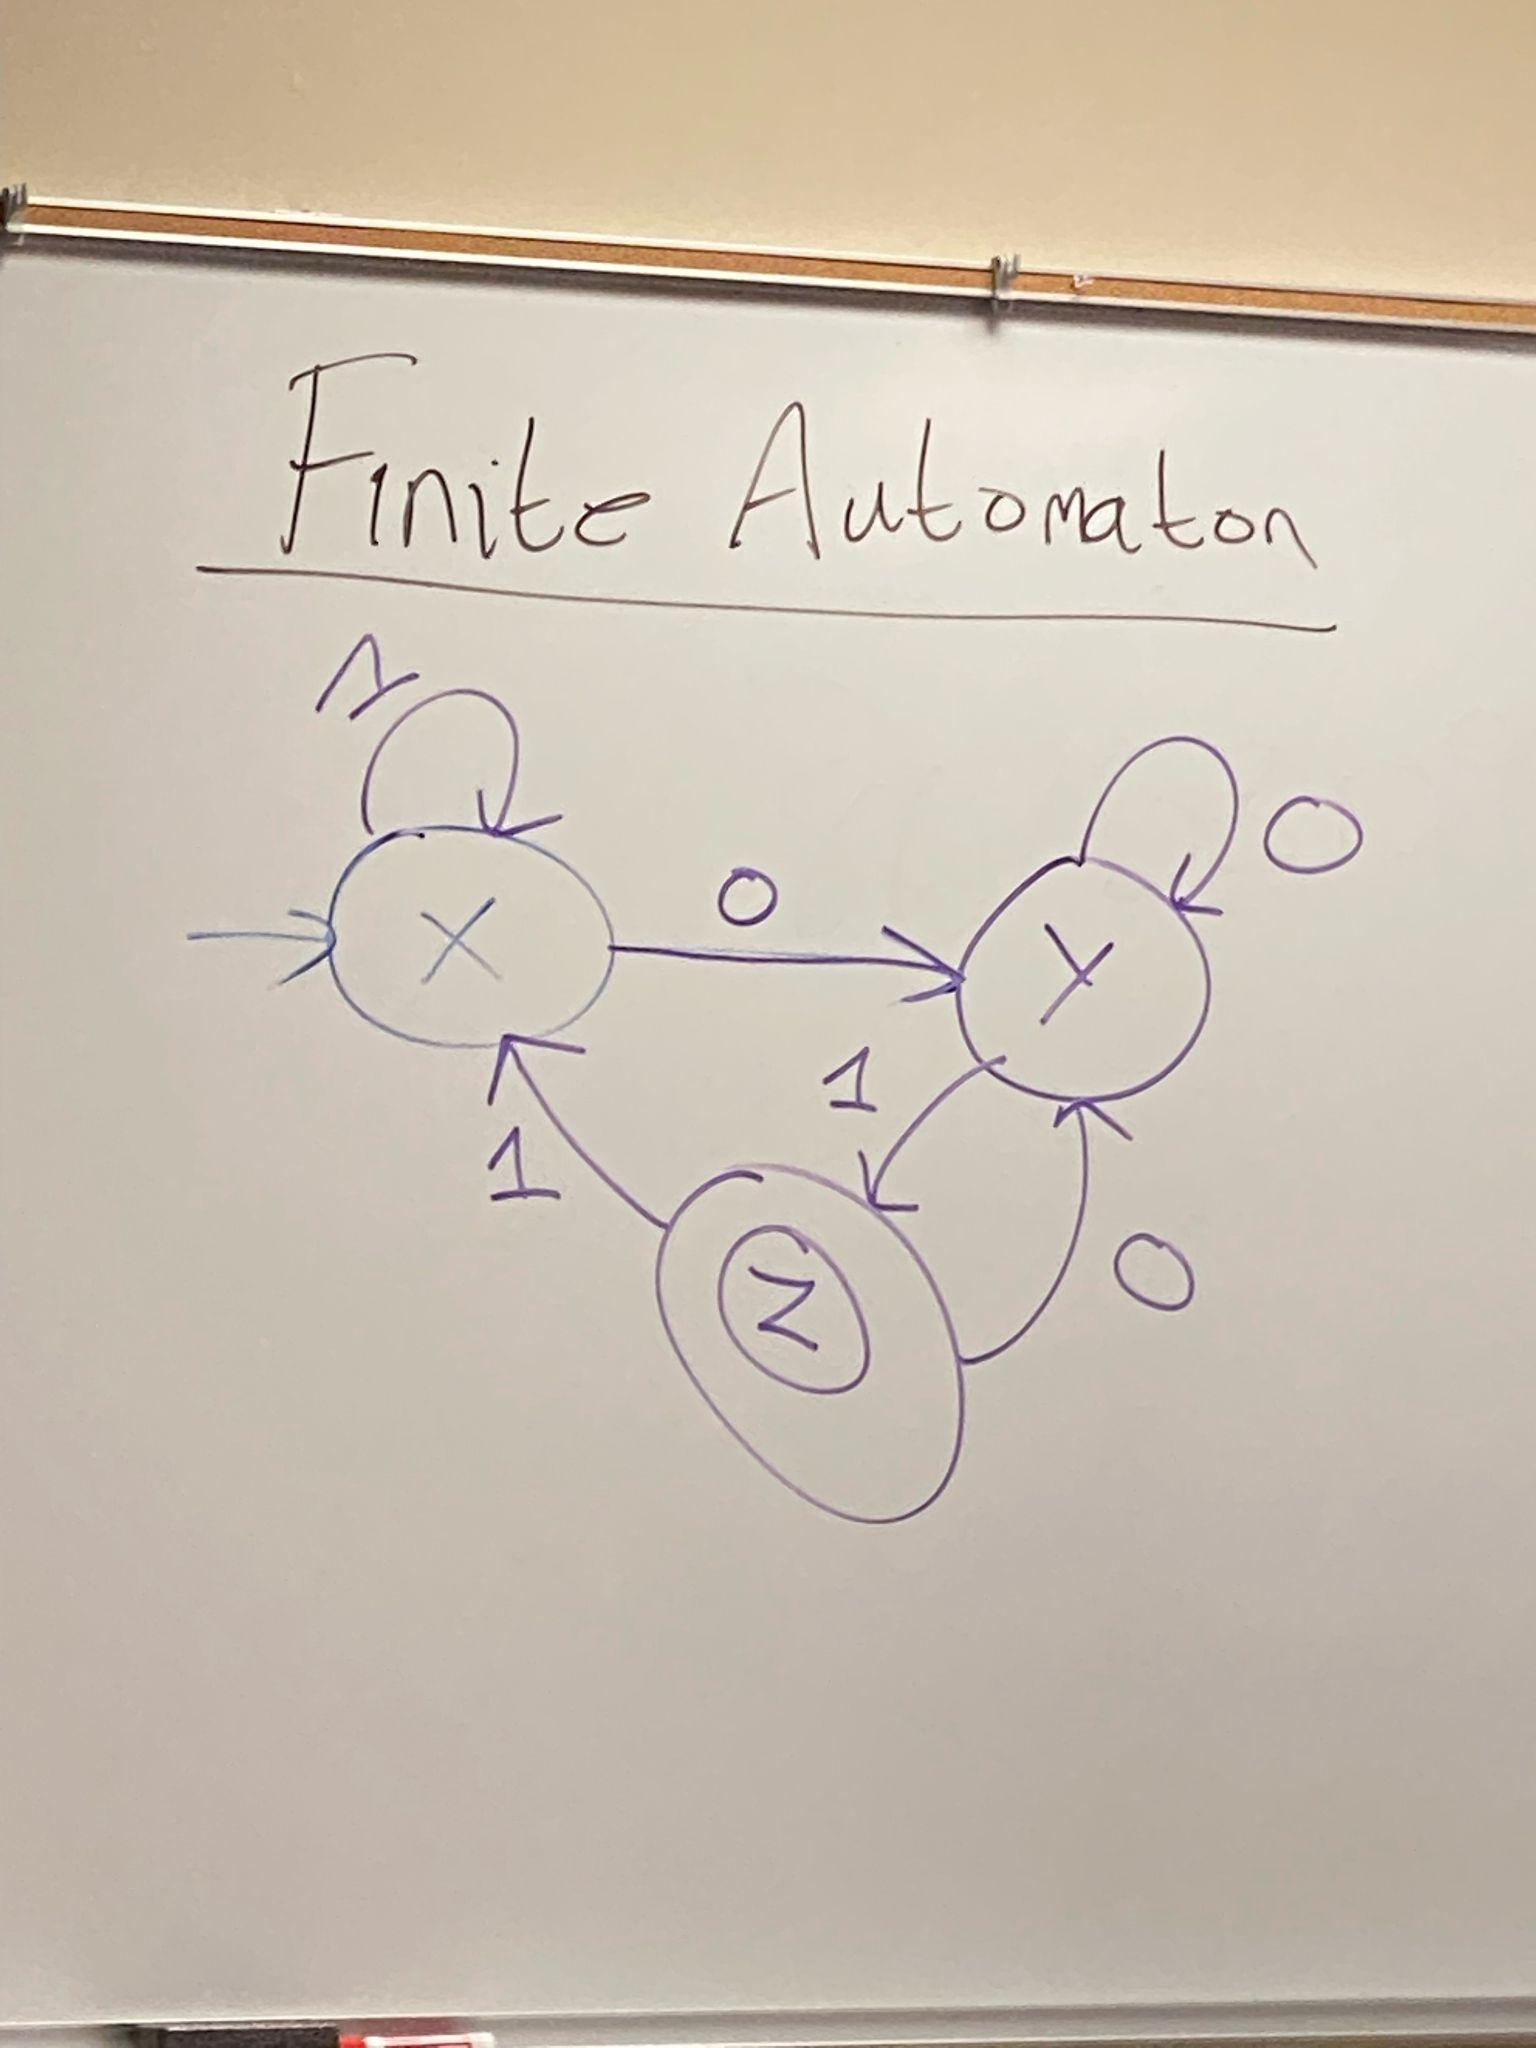 Finite Automaton
1
0
X
0
Y
1
1
0
Z